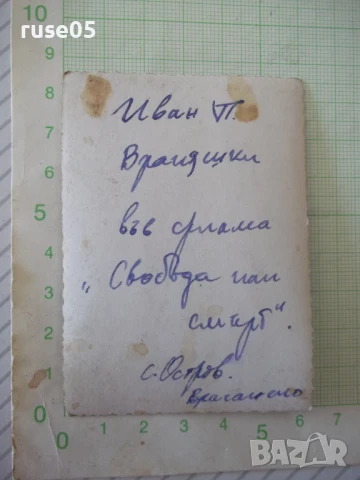 ruse05
Иван П.
Враняшки
във филма
"Свобода или
смърт".
с. Остров.
Врачанско
BAZAR
bg
10
9
8
7
6
5
4
3
2
1
0 1 2 3 4 5 6 7